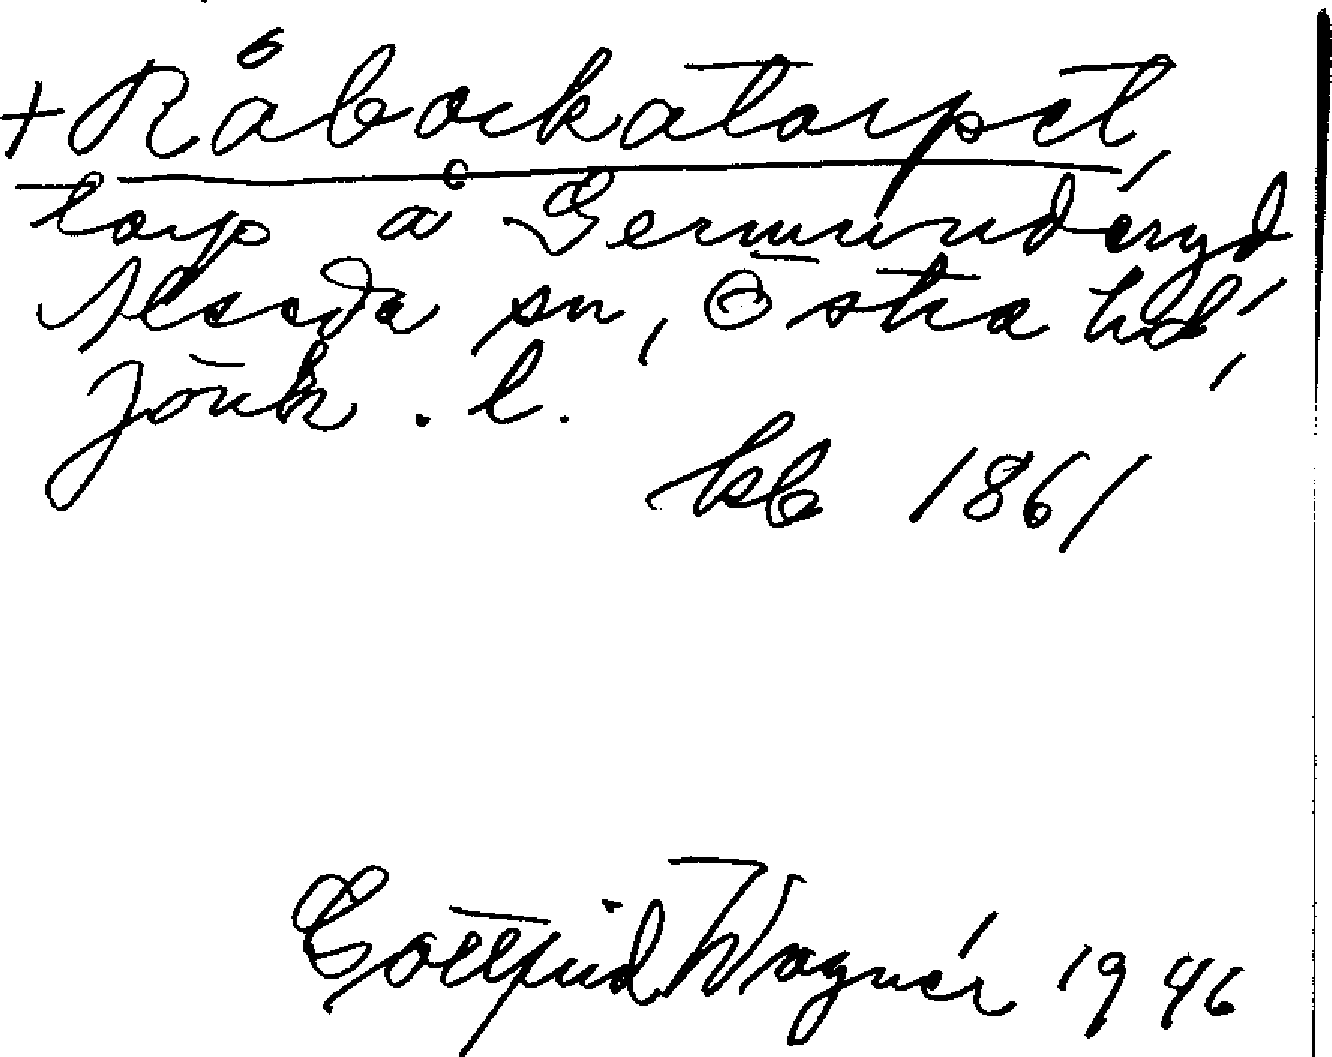 + Råbockatorpet,
torp å Germunderyd
Alseda sn, Östra hd,
Jönk. l.
kb 1861
Gottfrid Wagnér 1946